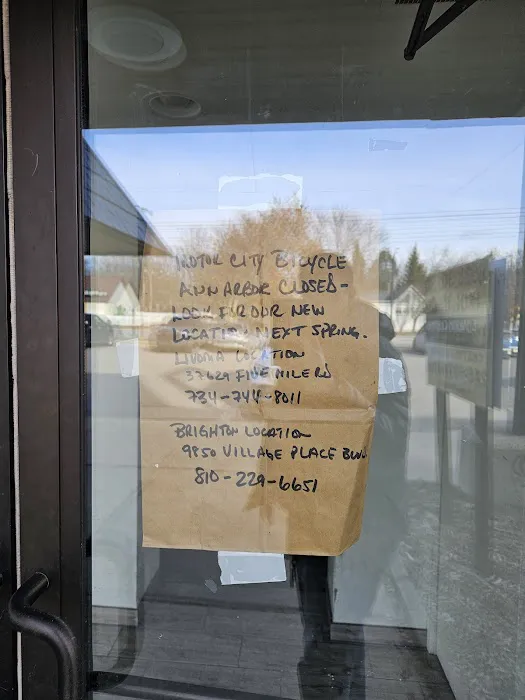 MOTOR CITY BICYCLE
ANN ARBOR CLOSED-
LOOK FOR OUR NEW
LOCATION NEXT SPRING.
LIVONIA LOCATION
37629 FIVE MILE RD
734-744-8011
BRIGHTON LOCATION
9850 VILLAGE PLACE BLVD
810-229-6651